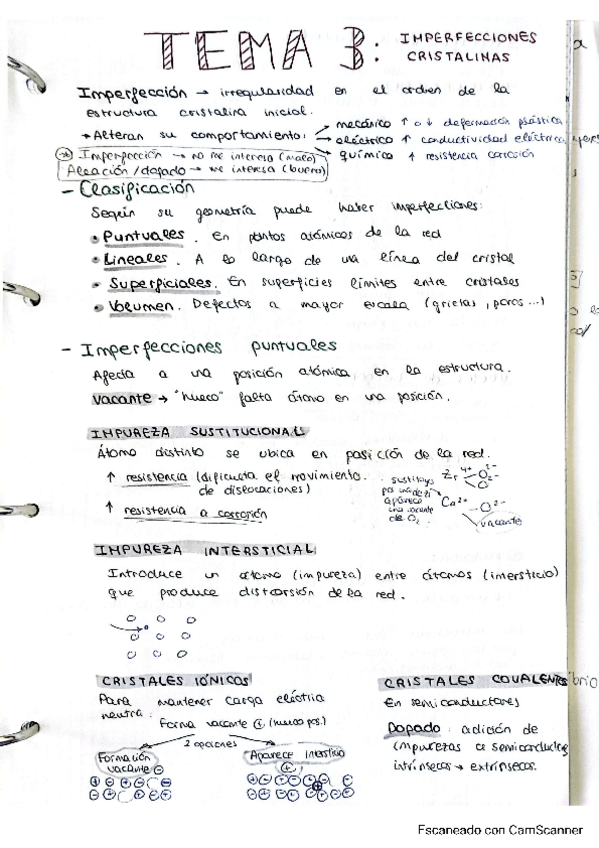 TEMA 3: IMPERFECCIONES
CRISTALINAS
Imperfección → irregularidad en el orden de la
estructura cristalina inicial.
→ Alteran su comportamiento:
mecánico ↑ o ↓ deformación plástica
eléctrico ↑ conductividad eléctrica
químico ↑ resistencia corrosión
* Imperfección → no me interesa (malo)
Aleación/dopado → me interesa (bueno)
- Clasificación
Según su geometría puede haber imperfecciones:
• Puntuales. En puntos atómicos de la red
• Lineales. A lo largo de una línea del cristal
• Superficiales. En superficies límites entre cristales
• Volumen. Defectos a mayor escala (grietas, poros...)
- Imperfecciones puntuales
Afecta a una posición atómica en la estructura.
Vacante → "hueco" falta átomo en una posición.
IMPUREZA SUSTITUCIONAL
Átomo distinto se ubica en posición de la red.
↑ resistencia (dificulta el movimiento
de dislocaciones)
↑ resistencia a corrosión
sustituyo
aparece
una vacante
de O₂
Zr 4+ O 2-
O 2-
Ca 2+ - O 2-
vacante
IMPUREZA INTERSTICIAL
Introduce un átomo (impureza) entre átomos (intersticio)
que produce distorsión de la red.
CRISTALES IÓNICOS
Para mantener carga eléctrica
neutra:
Forma vacante + (hueco pos.)
2 opciones
Formación
vacante -
Aparece intersticio
+
CRISTALES COVALENTES
En semiconductores
Dopado: adición de
impurezas a semiconductores
intrínsecos → extrínsecos.
Escaneado con CamScanner